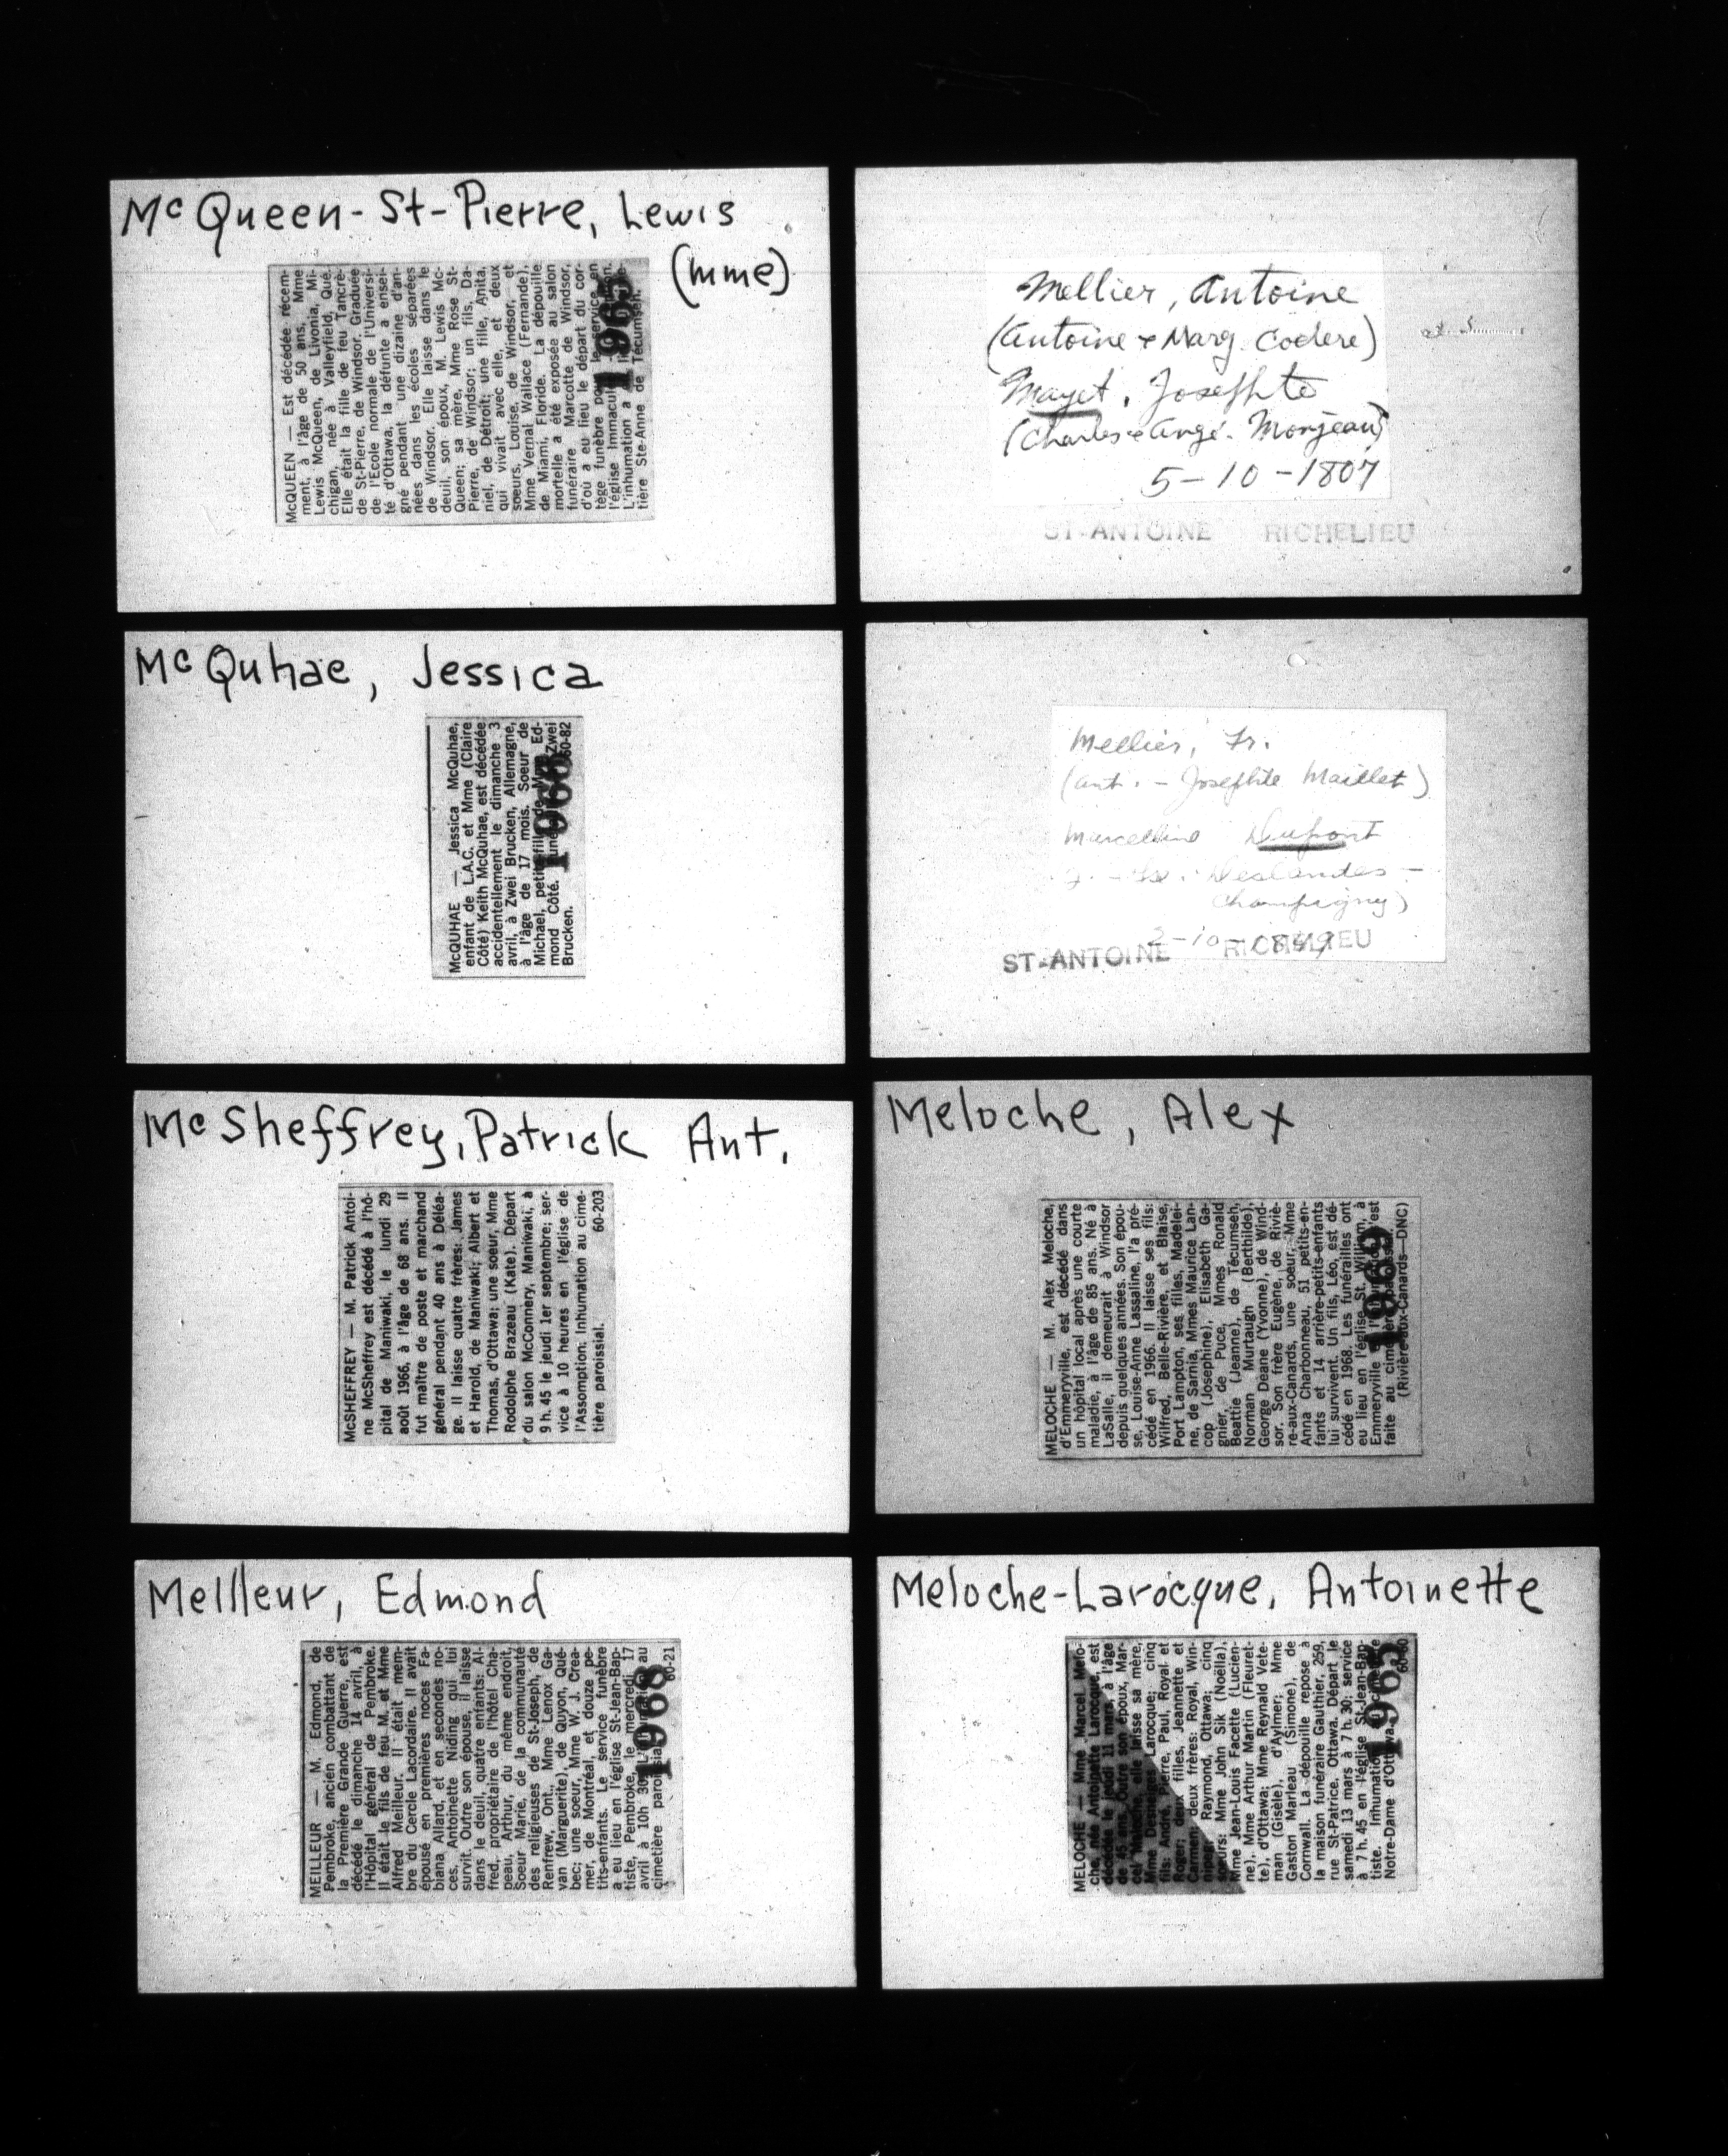 Mc Queen-St-Pierre, Lewis
(mme)
McQUEEN — Est décédée récem-
ment, à l'âge de 50 ans, Mme
Lewis McQueen, de Livonia, Mi-
chigan, née à Valleyfield, Qué.
Elle était la fille de feu Tancrè-
de St-Pierre, de Windsor. Graduée
de l'Ecole normale de l'Universi-
té d'Ottawa, la défunte a ensei-
gné pendant une dizaine d'an-
nées dans les écoles séparées
de Windsor. Elle laisse dans le
deuil, son époux, M. Lewis Mc-
Queen; sa mère, Mme Rose St-
Pierre, de Windsor; un fils, Da-
niel, de Détroit; une fille, Anita,
qui vivait avec elle, et deux
soeurs, Louise, de Windsor, et
Mme Vernal Wallace (Fernande),
de Miami, Floride. La dépouille
mortelle a été exposée au salon
funéraire Marcotte de Windsor,
d'où a eu lieu le départ du cor-
tège funèbre pour le service en
l'église Immaculée
L'inhumation a
tière Ste-Anne de Técumseh.
1965
Mc Quhae, Jessica
McQUHAE — Jessica McQuhae,
enfant de L.A.C. et Mme (Claire
Côté) Keith McQuhae, est décédée
accidentellement le dimanche 3
avril, à Zwei Brucken, Allemagne,
à l'âge de 17 mois. Soeur de
Michael, petite-fille de Mme Ed-
mond Côté. Zwei
Brucken. 60-82
1966
Mc Sheffrey, Patrick Ant.
McSHEFFREY — M. Patrick Antoi-
ne McSheffrey est décédé à l'hô-
pital de Maniwaki, le lundi 29
août 1966, à l'âge de 68 ans. Il
fut maître de poste et marchand
général pendant 40 ans à Déléa-
ge. Il laisse quatre frères: James
et Harold, de Maniwaki; Albert et
Thomas, d'Ottawa; une soeur, Mme
Rodolphe Brazeau (Kate). Départ
du salon McConnery, Maniwaki, à
9 h. 45 le jeudi 1er septembre; ser-
vice à 10 heures en l'église de
l'Assomption. Inhumation au cime-
tière paroissial. 60-203
Meilleur, Edmond
MEILLEUR — M. Edmond, de
Pembroke, ancien combattant de
la Première Grande Guerre, est
décédé le dimanche 14 avril, à
l'Hôpital général de Pembroke.
Il était le fils de feu M. et Mme
Alfred Meilleur. Il était mem-
bre du Cercle Lacordaire. Il avait
épousé en premières noces Fa-
biana Allard, et en secondes no-
ces, Antoinette Niding qui lui
survit. Outre son épouse, il laisse
dans le deuil, quatre enfants: Al-
fred, propriétaire de l'hôtel Cha-
peau, Arthur, du même endroit,
Soeur Marie, de la communauté
des religieuses de St-Joseph, de
Renfrew, Ont., Mme Lenox Ga-
van (Marguerite), de Quyon, Qué-
bec; une soeur, Mme W. J. Crea-
mer, de Montréal, et douze pe-
tits-enfants. Le service funèbre
a eu lieu en l'église St-Jean-Bap-
tiste, Pembroke, le mercredi, 17
avril à 10h 30. au
cimetière paroissial. 60-21
1968
Mellier, Antoine
(Antoine & Marg. Codere)
Mayet, Josephte
(Charles & Angé. Monjeau)
5-10-1807
ST-ANTOINE RICHELIEU
Mellier, Fr.
(Ant. - Josephte Maillet)
Marcelline Dupont
Deslandes -
Champigny)
ST-ANTOINE RICHELIEU
Meloche, Alex
MELOCHE — M. Alex Meloche,
d'Emmeryville, est décédé dans
un hôpital local après une courte
maladie, à l'âge de 85 ans. Né à
LaSalle, il demeurait à Windsor
depuis quelques années. Son épou-
se, Louise-Anne Lassaline, l'a pré-
cédé en 1966. Il laisse ses fils:
Wilfred, Belle-Rivière, et Blaise,
Port Lampton, ses filles, Madelei-
ne, de Sarnia, Mmes Maurice Lan-
cop (Josephine), Elisabeth Ga-
gnier, de Puce, Mmes Ronald
Beattie (Jeanne), de Técumseh,
Norman Murtaugh (Berthilde),
George Deane (Yvonne), de Wind-
sor. Son frère Eugène, de Riviè-
re-aux-Canards, une soeur, Mme
Anna Charbonneau, 51 petits-en-
fants et 14 arrière-petits-enfants
lui survivent. Un fils, Léo, est dé-
cédé en 1968. Les funérailles ont
eu lieu en l'église St. William, à
Emmeryville l'inhumation s'est
faite au cimetière paroissial.
(Rivière-aux-Canards—DNC)
1969
Meloche-Larocque, Antoinette
MELOCHE — Mme Marcel Melo-
che, née Antoinette Larocque, est
décédée le jeudi 11 mars, à l'âge
de 45 ans. Outre son époux, Mar-
cel Meloche, elle laisse sa mère,
Mme Desneiges Larocque; cinq
fils: André, Pierre, Paul, Royal et
Roger; deux filles, Jeannette et
Carmen; deux frères: Royal, Win-
nipeg; Raymond, Ottawa; cinq
soeurs: Mme John Sik (Noëlla),
Mme Jean-Louis Facette (Lucien-
ne), Mme Arthur Martin (Fleuret-
te), d'Ottawa; Mme Reynald Vete-
man (Gisèle), d'Aylmer; Mme
Gaston Marleau (Simone), de
Cornwall. La dépouille repose à
la maison funéraire Gauthier, 259,
rue St-Patrice, Ottawa. Départ le
samedi 13 mars à 7 h. 30; service
à 7 h. 45 en l'église St-Jean-Bap-
tiste. Inhumation
Notre-Dame d'Ottawa. 60-60
1965